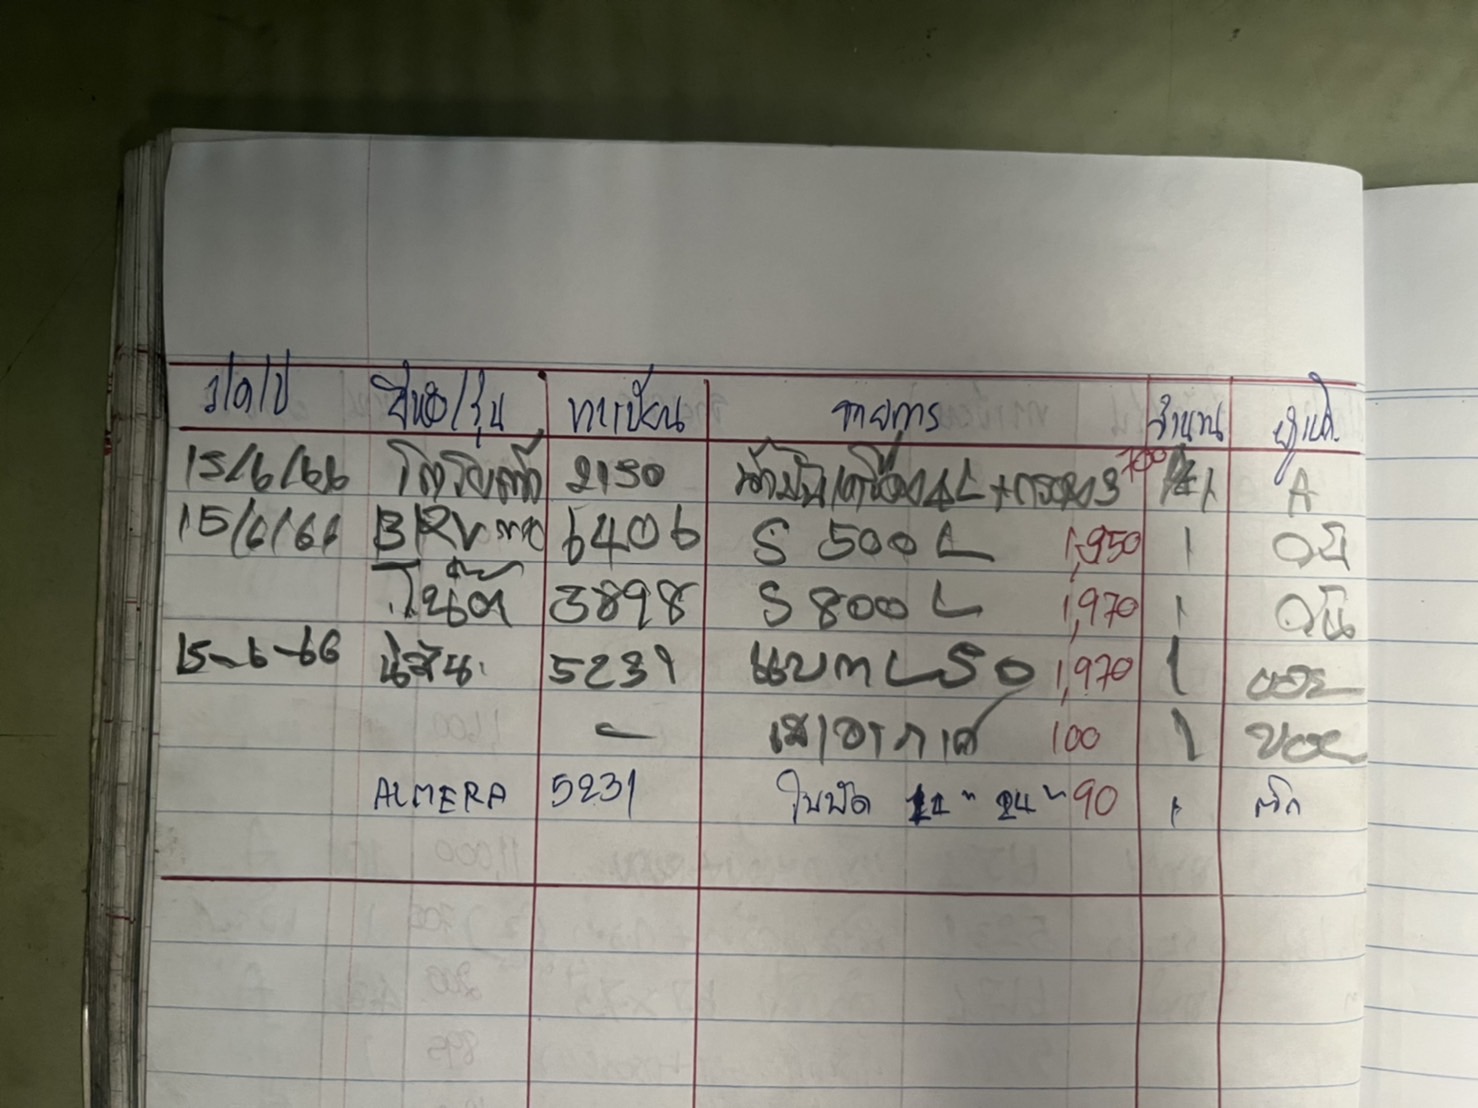 ว/ด/ป ยี่ห้อ/รุ่น ทะเบียน รายการ จำนวน ผู้เบิก
15/6/66 โตโยต้า 2150 น้ำมันเครื่อง 4L+กรอง 3 700 1 A
15/6/66 BRV 6406 S 500 L 1,950 1
3898 S 800 L 1,970 1
15-6-66 นิสสัน 5231 แบต L50 1,970 1
- 100 1
ALMERA 5231 ใบปัด 24" 90 1